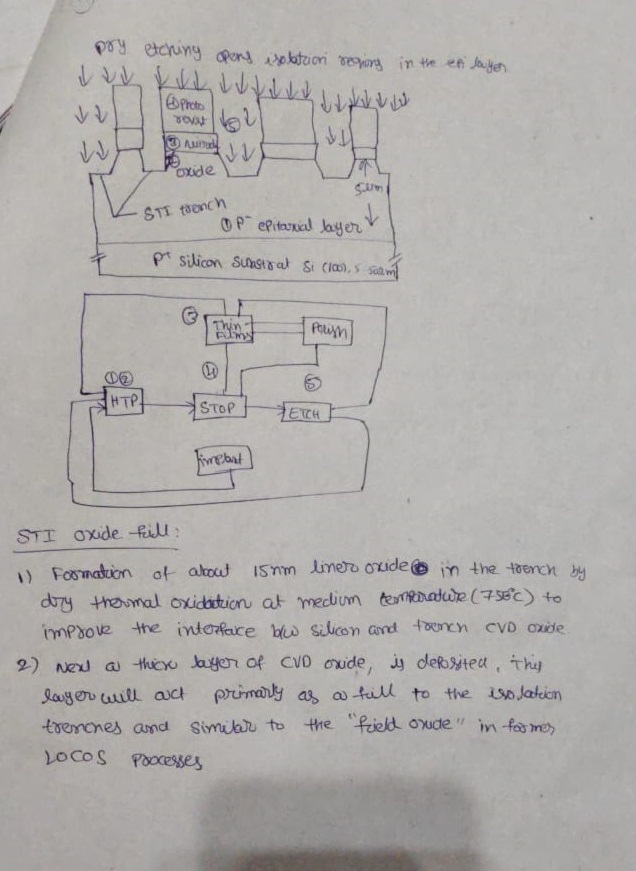 Dry etching opens isolation regions in the epi layer
④ Photo
resist
⑤
③ Nitride
②
oxide
5um
STI trench
① P⁻ epitaxial layer
P⁺ Silicon Substrat Si (100),
③
Thin-
Films
Polish
④
⑤
①②
HTP
STOP
ETCH
implant
STI oxide fill:
1) Formation of about 15nm liner oxide in the trench by
dry thermal oxidation at medium temperature (750°C) to
improve the interface b/w silicon and trench CVD oxide
2) Next a thick layer of CVD oxide, is deposited, This
layer will act primarly as a fill to the isolation
trenches and similar to the "field oxide" in former
LOCOS Processes